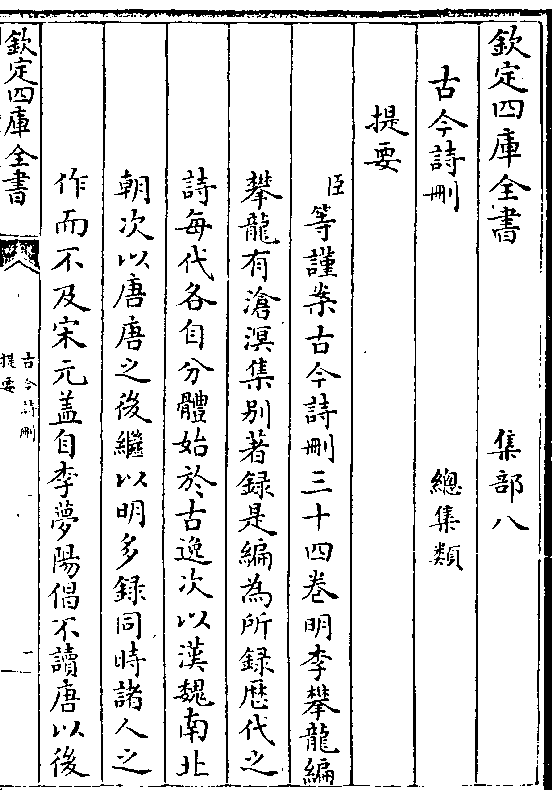 欽定四庫全書 集部八
古今詩刪 總集類
提要
臣等謹案古今詩刪三十四卷明李攀龍編
攀龍有滄溟集别著録是編為所録歴代之
詩每代各自分體始於古逸次以漢魏南北
朝次以唐唐之後繼以明多録同時諸人之
作而不及宋元盖自李夢陽倡不讀唐以後
欽定四庫全書
古今詩刪
提要
一